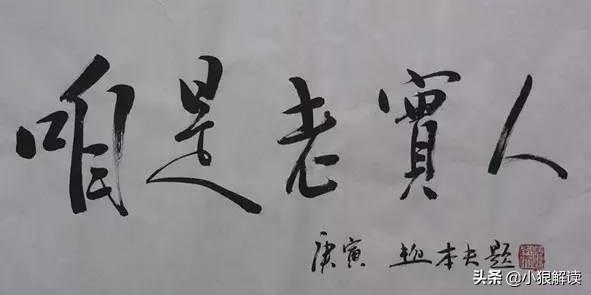 咱是老實人
庚寅 趙本夫題
头条 @小狠解读